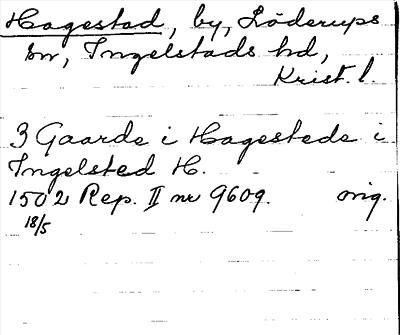 Hagestad, by, Löderups
sn, Ingelstads hd,
Krist. l.
3 Gaarde i Hagestede i
Ingelsted H.
1502 Rep. II nr 9609. orig.
18/5